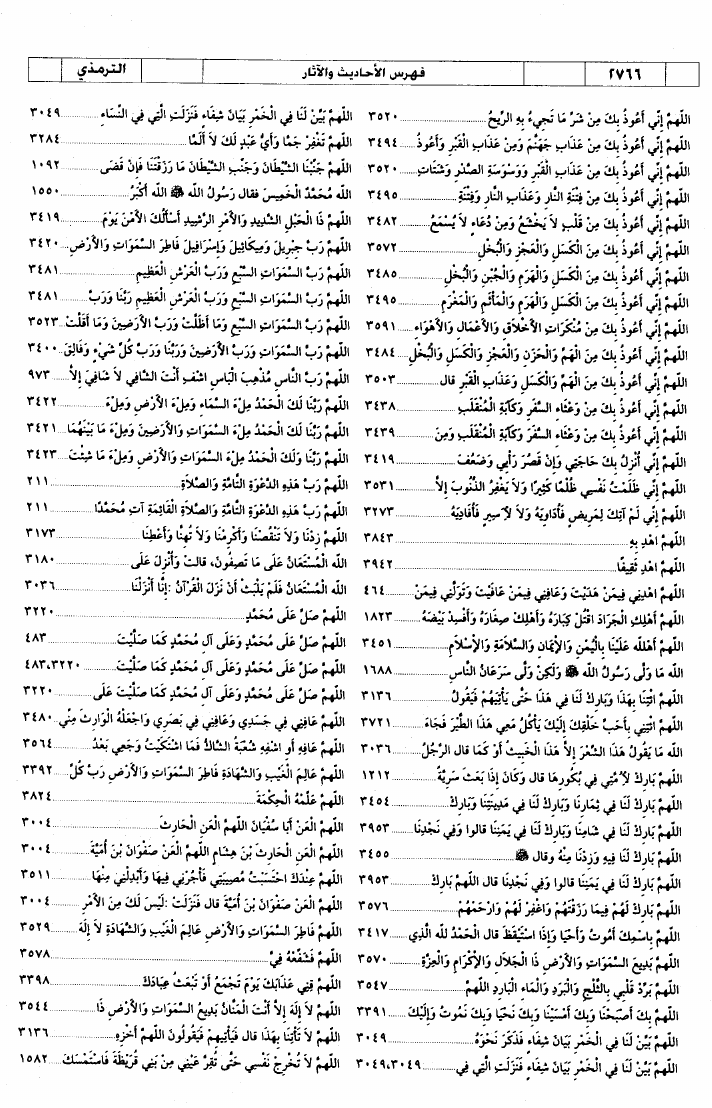 ٢٧٦٦
فهرس الأحاديث والآثار
الترمذي
اللهمَّ إنِّي أَعُوذُ بِكَ مِنْ شَرِّ مَا تَجِيءُ بِهِ الرِّيحُ ٣٥٢٠
اللهمَّ إنِّي أَعُوذُ بِكَ مِنْ عَذَابِ جَهَنَّمَ وَمِنْ عَذَابِ الْقَبْرِ وَأَعُوذُ ٣٤٩٤
اللهمَّ إنِّي أَعُوذُ بِكَ مِنْ عَذَابِ الْقَبْرِ وَوَسْوَسَةِ الصَّدْرِ وَشَتَاتِ ٣٥٢٠
اللهمَّ إنِّي أَعُوذُ بِكَ مِنْ فِتْنَةِ النَّارِ وَعَذَابِ النَّارِ وَفِتْنَةِ ٣٤٩٥
اللهمَّ إنِّي أَعُوذُ بِكَ مِنْ قَلْبٍ لاَ يَخْشَعُ وَمِنْ دُعَاءٍ لاَ يُسْمَعُ ٣٤٨٢
اللهمَّ إنِّي أَعُوذُ بِكَ مِنَ الْكَسَلِ وَالْعَجْزِ وَالْبُخْلِ ٣٥٧٢
اللهمَّ إنِّي أَعُوذُ بِكَ مِنَ الْكَسَلِ وَالْهَرَمِ وَالْجُبْنِ وَالْبُخْلِ ٣٤٨٥
اللهمَّ إنِّي أَعُوذُ بِكَ مِنَ الْكَسَلِ وَالْهَرَمِ وَالْمَأْثَمِ وَالْمَغْرَمِ ٣٤٩٥
اللهمَّ إنِّي أَعُوذُ بِكَ مِنْ مُنْكَرَاتِ الأَخْلاَقِ وَالأَعْمَالِ وَالأَهْوَاءِ ٣٥٩١
اللهمَّ إنِّي أَعُوذُ بِكَ مِنَ الْهَمِّ وَالْحَزَنِ وَالْعَجْزِ وَالْكَسَلِ وَالْبُخْلِ ٣٤٨٤
اللهمَّ إنِّي أَعُوذُ بِكَ مِنَ الْهَمِّ وَالْكَسَلِ وَعَذَابِ الْقَبْرِ قال ٣٥٠٣
اللهمَّ إنِّي أَعُوذُ بِكَ مِنْ وَعْثَاءِ السَّفَرِ وَكَآبَةِ الْمُنْقَلَبِ ٣٤٣٨
اللهمَّ إنِّي أَعُوذُ بِكَ مِنْ وَعْثَاءِ السَّفَرِ وَكَآبَةِ الْمُنْقَلَبِ وَمِنَ ٣٤٣٩
اللهمَّ إنِّي أُنْزِلُ بِكَ حَاجَتِي وَإنْ قَصُرَ رَأْيِي وَضَعُفَ ٣٤١٩
اللهمَّ إنِّي ظَلَمْتُ نَفْسِي ظُلْمًا كَثِيرًا وَلاَ يَغْفِرُ الذُّنُوبَ إلاَّ ٣٥٣١
اللهمَّ إنِّي لَمْ آتِكَ لِمَرِيضٍ فَأُدَاوِيَهُ وَلاَ لأَسِيرٍ فَأُفَادِيَهُ ٣٢٧٣
اللهمَّ اهْدِ بِهِ ٣٨٤٣
اللهمَّ اهْدِ ثَقِيفًا ٣٩٤٢
اللهمَّ اهْدِنِي فِيمَنْ هَدَيْتَ وَعَافِنِي فِيمَنْ عَافَيْتَ وَتَوَلَّنِي فِيمَنْ ٤٦٤
اللهمَّ أَهْلِكِ الْجَرَادَ اقْتُلْ كِبَارَهُ وَأَهْلِكْ صِغَارَهُ وَأَفْسِدْ بَيْضَهُ ١٨٢٣
اللهمَّ أَهْلِلْهُ عَلَيْنَا بِالْيُمْنِ وَالإيمَانِ وَالسَّلاَمَةِ وَالإسْلاَمِ ٣٤٥١
اللهِ مَا وَلَّى رَسُولُ اللهِ ﷺ وَلَكِنْ وَلَّى سَرَعَانُ النَّاسِ ١٦٨٨
اللهمَّ ائْتِنَا بِهَذَا وَبَارِكْ لَنَا فِي هَذَا حَتَّى يَأْتِيَهُمْ فَيَقُولُ ٣١٣٦
اللهمَّ ائْتِنِي بِأَحَبِّ خَلْقِكَ إلَيْكَ يَأْكُلُ مَعِي هَذَا الطَّيْرَ فَجَاءَ ٣٧٢١
اللهِ مَا يَقُولُ هَذَا الشِّعْرَ إلاَّ هَذَا الْخَبِيثُ أَوْ كَمَا قال الرَّجُلُ ٣٠٣٦
اللهمَّ بَارِكْ لأُمَّتِي فِي بُكُورِهَا قال وَكَانَ إذَا بَعَثَ سَرِيَّةً ١٢١٢
اللهمَّ بَارِكْ لَنَا فِي ثِمَارِنَا وَبَارِكْ لَنَا فِي مَدِينَتِنَا وَبَارِكْ ٣٤٥٤
اللهمَّ بَارِكْ لَنَا فِي شَامِنَا وَبَارِكْ لَنَا فِي يَمَنِنَا قالوا وَفِي نَجْدِنَا ٣٩٥٣
اللهمَّ بَارِكْ لَنَا فِيهِ وَزِدْنَا مِنْهُ وقال ﷺ ٣٤٥٥
اللهمَّ بَارِكْ لَنَا فِي يَمَنِنَا قالوا وَفِي نَجْدِنَا قال اللهمَّ بَارِكْ ٣٩٥٣
اللهمَّ بَارِكْ لَهُمْ فِيمَا رَزَقْتَهُمْ وَاغْفِرْ لَهُمْ وَارْحَمْهُمْ ٣٥٧٦
اللهمَّ بِاسْمِكَ أَمُوتُ وَأَحْيَا وَإذَا اسْتَيْقَظَ قال الْحَمْدُ للهِ الَّذِي ٣٤١٧
اللهمَّ بَدِيعَ السَّمَوَاتِ وَالأَرْضِ ذَا الْجَلاَلِ وَالإكْرَامِ وَالْعِزَّةِ ٣٥٧٠
اللهمَّ بَرِّدْ قَلْبِي بِالثَّلْجِ وَالْبَرَدِ وَالْمَاءِ الْبَارِدِ اللهمَّ ٣٥٤٧
اللهمَّ بِكَ أَصْبَحْنَا وَبِكَ أَمْسَيْنَا وَبِكَ نَحْيَا وَبِكَ نَمُوتُ وَإلَيْكَ ٣٣٩١
اللهمَّ بَيِّنْ لَنَا فِي الْخَمْرِ بَيَانَ شِفَاءٍ فَذَكَرَ نَحْوَهُ ٣٠٤٩
اللهمَّ بَيِّنْ لَنَا فِي الْخَمْرِ بَيَانَ شِفَاءٍ فَنَزَلَتِ الَّتِي فِي ٣٠٤٩،٣٠٤٩
اللهمَّ بَيِّنْ لَنَا فِي الْخَمْرِ بَيَانَ شِفَاءٍ فَنَزَلَتِ الَّتِي فِي النِّسَاءِ ٣٠٤٩
اللهمَّ تَغْفِرْ جَمًّا وَأَيُّ عَبْدٍ لَكَ لاَ أَلَمَّا ٣٢٨٤
اللهمَّ جَنِّبْنَا الشَّيْطَانَ وَجَنِّبِ الشَّيْطَانَ مَا رَزَقْتَنَا فَإنْ قَضَى ١٠٩٢
اللهِ مُحَمَّدٌ الْخَمِيسَ فقال رَسُولُ اللهِ ﷺ اللهُ أَكْبَرُ ١٥٥٠
اللهمَّ ذَا الْحَبْلِ الشَّدِيدِ وَالأَمْرِ الرَّشِيدِ أَسْأَلُكَ الأَمْنَ يَوْمَ ٣٤١٩
اللهمَّ رَبَّ جِبْرِيلَ وَمِيكَائِيلَ وَإسْرَافِيلَ فَاطِرَ السَّمَوَاتِ وَالأَرْضِ ٣٤٢٠
اللهمَّ رَبَّ السَّمَوَاتِ السَّبْعِ وَرَبَّ الْعَرْشِ الْعَظِيمِ ٣٤٨١
اللهمَّ رَبَّ السَّمَوَاتِ السَّبْعِ وَرَبَّ الْعَرْشِ الْعَظِيمِ رَبَّنَا وَرَبَّ ٣٤٨١
اللهمَّ رَبَّ السَّمَوَاتِ السَّبْعِ وَمَا أَظَلَّتْ وَرَبَّ الأَرَضِينَ وَمَا أَقَلَّتْ ٣٥٢٣
اللهمَّ رَبَّ السَّمَوَاتِ وَرَبَّ الأَرَضِينَ وَرَبَّنَا وَرَبَّ كُلِّ شَيْءٍ وَفَالِقَ ٣٤٠٠
اللهمَّ رَبَّ النَّاسِ مُذْهِبَ الْبَاسِ اشْفِ أَنْتَ الشَّافِي لاَ شَافِيَ إلاَّ ٩٧٣
اللهمَّ رَبَّنَا لَكَ الْحَمْدُ مِلْءَ السَّمَاءِ وَمِلْءَ الأَرْضِ وَمِلْءَ ٣٤٢٢
اللهمَّ رَبَّنَا لَكَ الْحَمْدُ مِلْءَ السَّمَوَاتِ وَالأَرَضِينَ وَمِلْءَ مَا بَيْنَهُمَا ٣٤٢١
اللهمَّ رَبَّنَا وَلَكَ الْحَمْدُ مِلْءَ السَّمَوَاتِ وَالأَرْضِ وَمِلْءَ مَا شِئْتَ ٣٤٢٣
اللهمَّ رَبَّ هَذِهِ الدَّعْوَةِ التَّامَّةِ وَالصَّلاَةِ ٢١١
اللهمَّ رَبَّ هَذِهِ الدَّعْوَةِ التَّامَّةِ وَالصَّلاَةِ الْقَائِمَةِ آتِ مُحَمَّدًا ٢١١
اللهمَّ زِدْنَا وَلاَ تَنْقُصْنَا وَأَكْرِمْنَا وَلاَ تُهِنَّا وَأَعْطِنَا ٣١٧٣
اللهُ الْمُسْتَعَانُ عَلَى مَا تَصِفُونَ، قالت وَأُنْزِلَ عَلَى ٣١٨٠
اللهُ الْمُسْتَعَانُ فَلَمْ يَلْبَثْ أَنْ نَزَلَ الْقُرْآنُ :إنَّا أَنْزَلْنَا ٣٠٣٦
اللهمَّ صَلِّ عَلَى مُحَمَّدٍ ٣٢٢٠
اللهمَّ صَلِّ عَلَى مُحَمَّدٍ وَعَلَى آلِ مُحَمَّدٍ كَمَا صَلَّيْتَ ٤٨٣
اللهمَّ صَلِّ عَلَى مُحَمَّدٍ وَعَلَى آلِ مُحَمَّدٍ كَمَا صَلَّيْتَ ٤٨٣،٣٢٢٠
اللهمَّ صَلِّ عَلَى مُحَمَّدٍ وَعَلَى آلِ مُحَمَّدٍ كَمَا صَلَّيْتَ عَلَى ٣٢٢٠
اللهمَّ عَافِنِي فِي جَسَدِي وَعَافِنِي فِي بَصَرِي وَاجْعَلْهُ الْوَارِثَ مِنِّي ٣٤٨٠
اللهمَّ عَافِهِ أَوِ اشْفِهِ شُعْبَةُ الشَّاكُّ فَمَا اشْتَكَيْتُ وَجَعِي بَعْدُ ٣٥٦٤
اللهمَّ عَالِمَ الْغَيْبِ وَالشَّهَادَةِ فَاطِرَ السَّمَوَاتِ وَالأَرْضِ رَبَّ كُلِّ ٣٣٩٢
اللهمَّ عَلِّمْهُ الْحِكْمَةَ ٣٨٢٤
اللهمَّ الْعَنْ أَبَا سُفْيَانَ اللهمَّ الْعَنِ الْحَارِثَ ٣٠٠٤
اللهمَّ الْعَنِ الْحَارِثَ بْنَ هِشَامٍ اللهمَّ الْعَنْ صَفْوَانَ بْنَ أُمَيَّةَ ٣٠٠٤
اللهمَّ عِنْدَكَ احْتَسَبْتُ مُصِيبَتِي فَأْجُرْنِي فِيهَا وَأَبْدِلْنِي مِنْهَا ٣٥١١
اللهمَّ الْعَنْ صَفْوَانَ بْنَ أُمَيَّةَ قال فَنَزَلَتْ :لَيْسَ لَكَ مِنَ الأَمْرِ ٣٠٠٤
اللهمَّ فَاطِرَ السَّمَوَاتِ وَالأَرْضِ عَالِمَ الْغَيْبِ وَالشَّهَادَةِ لاَ إلَهَ ٣٥٢٩
اللهمَّ فَشَفِّعْهُ فِيَّ ٣٥٧٨
اللهمَّ قِنِي عَذَابَكَ يَوْمَ تَجْمَعُ أَوْ تَبْعَثُ عِبَادَكَ ٣٣٩٨
اللهمَّ لاَ إلَهَ إلاَّ أَنْتَ الْمَنَّانُ بَدِيعُ السَّمَوَاتِ وَالأَرْضِ ذَا ٣٥٤٤
اللهمَّ لاَ تَأْتِنَا بِهَذَا قال فَيَأْتِيهِمْ فَيَقُولُونَ اللهمَّ أَخْزِهِ ٣١٣٦
اللهمَّ لاَ تُخْرِجْ نَفْسِي حَتَّى تُقِرَّ عَيْنِي مِنْ بَنِي قُرَيْظَةَ فَاسْتَمْسَكَ ١٥٨٢